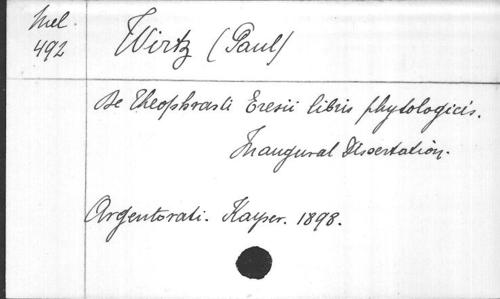 Mel.
492
Wirtz (Paul)
De Theophrasti Eresii libris phytologicis.
Inaugural Dissertation.
Argentorati. Kayser. 1898.